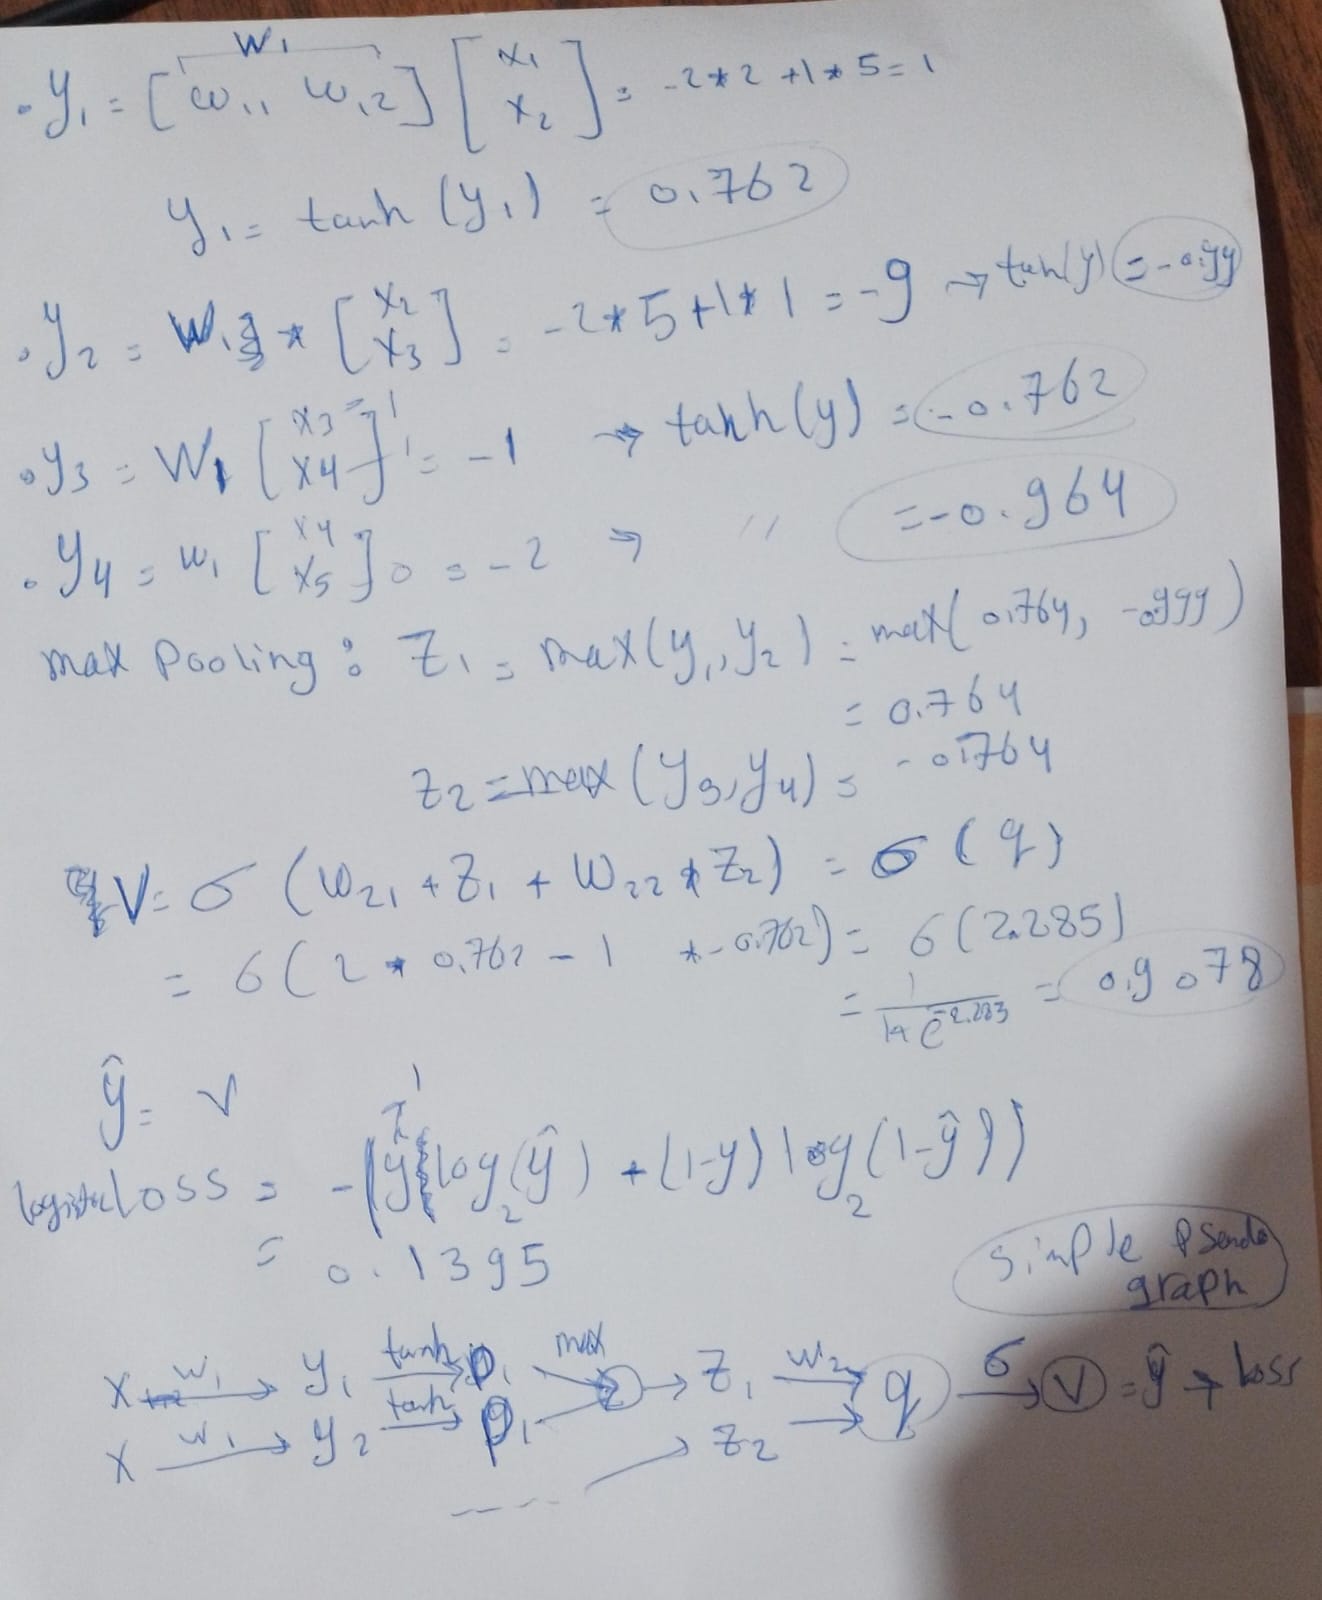 W₁
• y₁ = [ω₁₁ ω₁₂] [x₁ x₂] = -2*2 +1*5 = 1
y₁ = tanh (y₁) = 0.762
• y₂ = W₁ * [x₂ x₃] = -2*5+1*1 = -9 → tanh(y) = -0.99
• y₃ = W₁ [x₃ = 1 x₄ 1] = -1 → tanh(y) = -0.762
• y₄ = w₁ [x₄ x₅] 0 = -2 → " = -0.964
max Pooling : Z₁ = max(y₁, y₂) = max(0.764, -0.999)
= 0.764
Z₂ = max (y₃, y₄) = -0.764
V = σ (W₂₁ * Z₁ + W₂₂ * Z₂) = σ (q)
= σ( 2 * 0.762 - 1 * -0.762) = σ(2.285)
= 1/(1+ e^-2.283) = 0.9078
ŷ = V
1
logistic Loss = -(y log₂(ŷ) + (1-y) log₂(1-ŷ))
= 0.1395
Simple Pseudo
graph
X —W₁→ y₁ —tanh→ P₁ max → Z₁ —W₂→ q —σ→ V = ŷ → Loss
X —W₁→ y₂ —tanh→ P₁ → Z₂ →